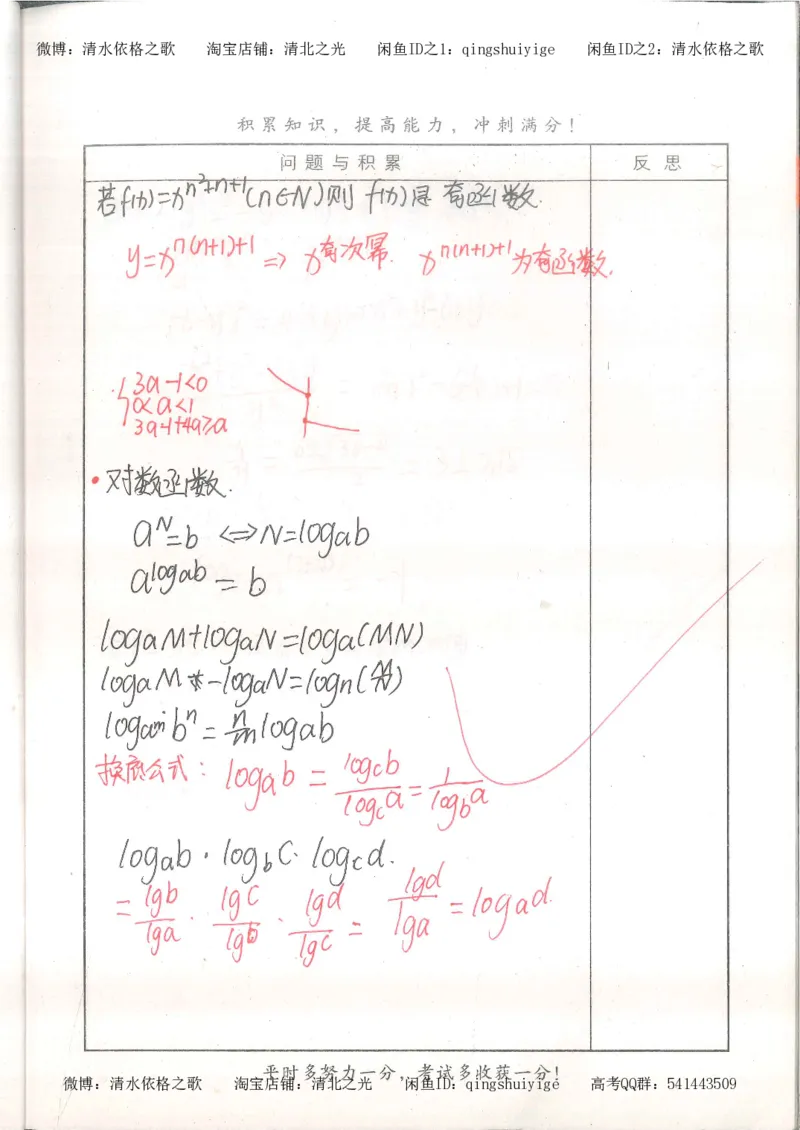 微博：清水依格之歌 淘宝店铺：清北之光 闲鱼ID之1：qingshuiyige 闲鱼ID之2：清水依格之歌
积累知识，提高能力，冲刺满分！
问题与积累 反思
若f(x)=x^{n²+n+1}(n∈N)则f(x)是奇函数.
y=x^{n(n+1)+1} => x^{奇次幂}. x^{n(n+1)+1}为奇函数.
{3a-1<0
0<a<1
3a-1+4a≥a
·对数函数.
a^N=b <=> N=log_a b
a^{log_a b}=b
log_a M+log_a N=log_a(MN)
log_a M-log_a N=log_n(M/N)
log_{a^m} b^n=n/m log_a b
换底公式：log_a b=log_c b/log_c a=1/log_b a
log_a b·log_b C·log_c d.
=lgb/lga·lgC/lgb·lgd/lgc=lgd/lga=log_a d.
平时多努力一分，考试多收获一分！
微博：清水依格之歌 淘宝店铺：清北之光 闲鱼ID：qingshuiyige 高考QQ群：541443509